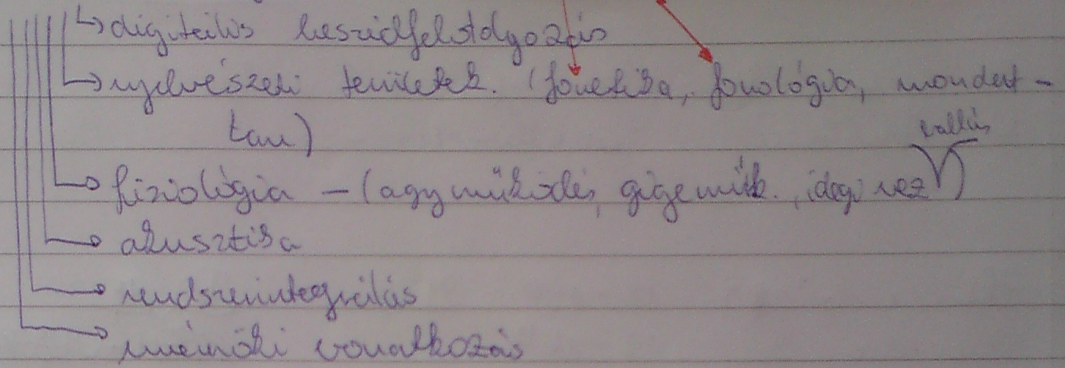 digitális beszédfeldolgozás
nyelvészeti területek. (fonetika, fonológia, mondat-
tan)
fiziológia – (agyműködés, gégeműk., idegi vez. hallás)
akusztika
rendszerintegrálás
mérnöki vonatkozás